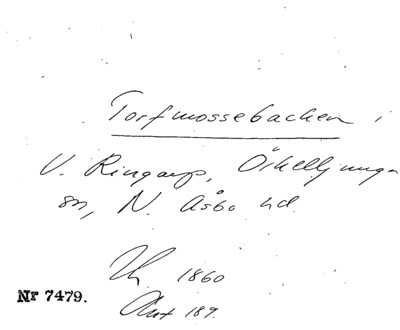 Torfmossebacken i
V. Ringarp, Örkelljunga
sn, N. Åsbo hd.
1860
Nr 7479.
189.